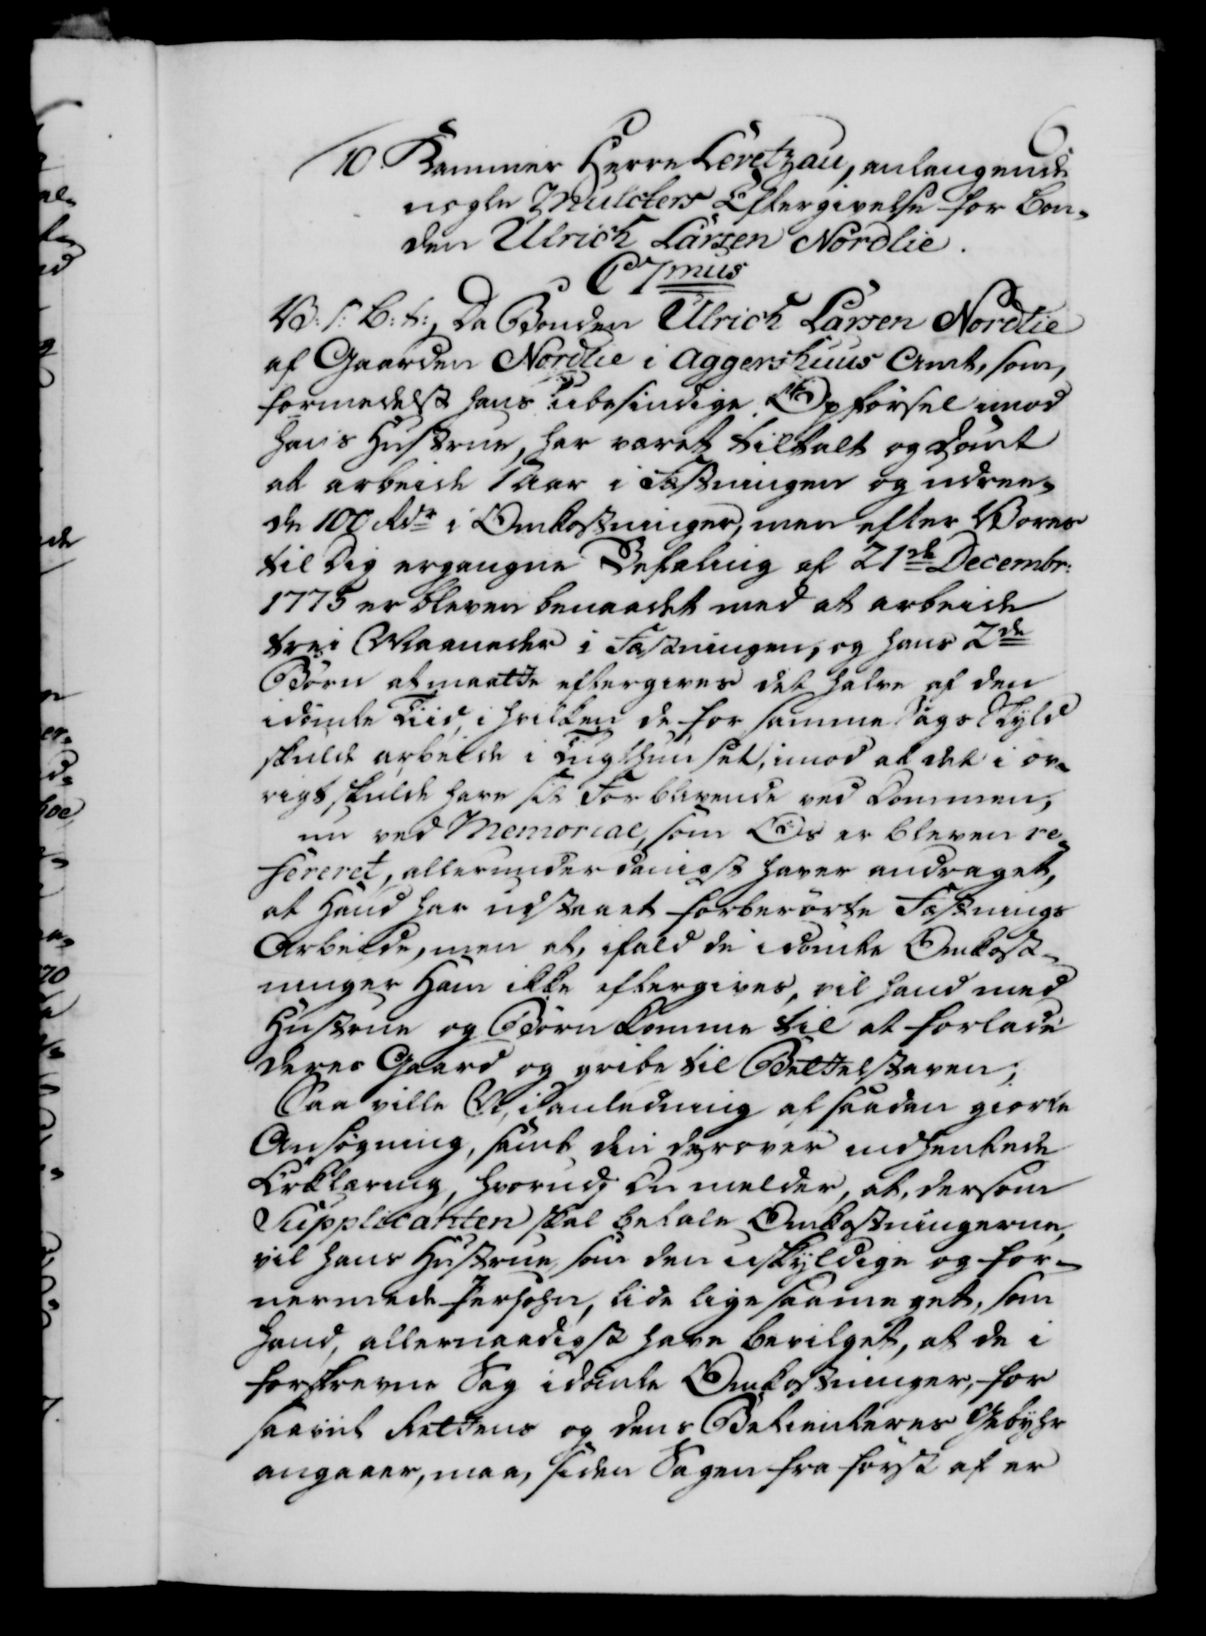 6
10. Kammer Herre Levetzau, anlangende
nogle Mulcters Eftergivelse for Bon-
den Ulrich Larsen Nordlie.
C 7mus
V: S: B: t:, Da Bonden Ulrich Larsen Nordlie
af Gaarden Nordlie i Aggershuus Amt, som,
formedelst hans ubesindige Opförsel imod
hans Hustrue, har været tiltalt og dömt
at arbeide 1 Aar i Fæstningen og udree-
de 100 Rdr i Omkostninger, men efter Vores
til Dig ergangne Befaling af 21de Decembr:
1775 er bleven benaadet med at arbeide
trei Maaneder i Fæstningen, og hans 2de
Börn at maatte eftergives det halve af den
idömte Tiid, i hvilken de for samme Sags Skyld
skulde arbeide i Tugthuuset, imod at det i öv-
rigt skulde have sit Forblivende ved Dommen,
nu ved Memorial, som Os er bleven re-
fereret, allerunderdanigst haver andraget,
at Hand har udstaaet forberörte Fæstnings
Arbeide, men at, ifald de idömte Omkost-
ninger Ham ikke eftergives, vil hand med
Hustrue og Börn komme til at forlade
deres Gaard og gribe til Bettelstaven;
Saa ville Vi, i anledning af saadan giorte
Ansögning, samt din derover indhentede
Erklæring, hvorudi Du melder, at, dersom
Supplicanten skal betale Omkostningerne,
vil hans Hustrue, som den uskyldige og for-
nermede Persohn, lide lige saameget, som
hand, allernaadigst have bevilget, at de i
forskrevne Sag idömte Omkostninger, for
saavit Rettens og dens Betienteres Gebyhr
angaaer, maa, siden Sagen fra först af er